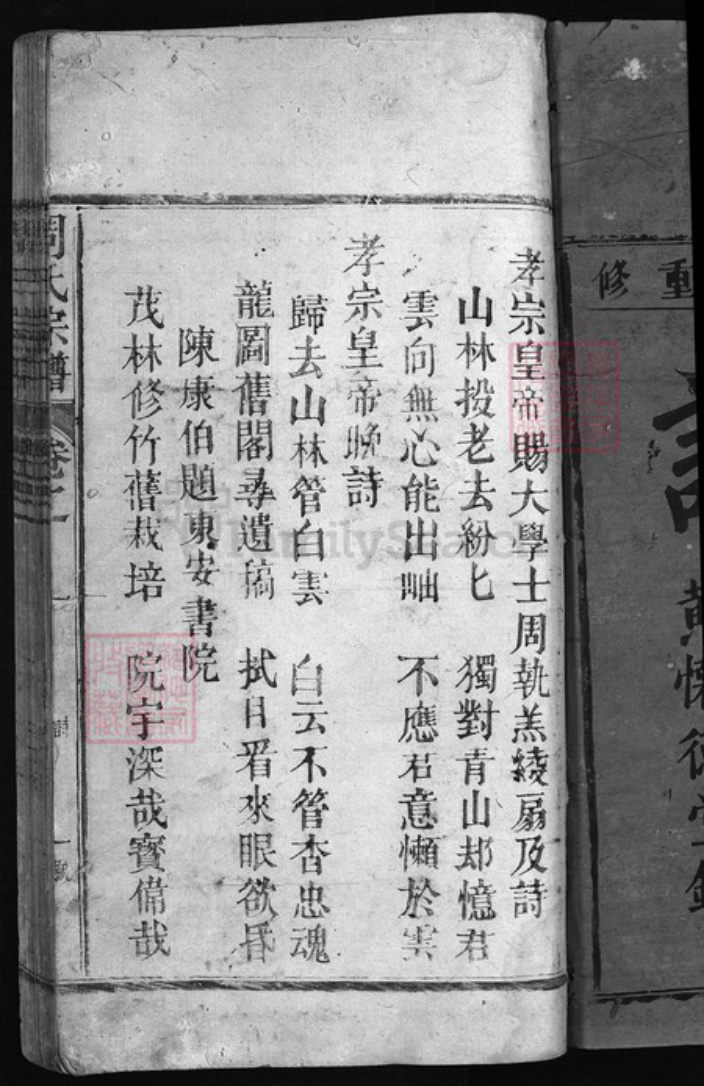 重修
譜
黃
懷德堂
孝宗皇帝賜大學士周執羔綾扇及詩
山林投老去紛匕　獨對青山却憶君
雲向無心能出岫　不應君意懶於雲
孝宗皇帝晚詩
歸去山林管白雲　白云不管杳忠魂
龍圖舊閣尋遺稿　拭目看來眼欲昏
陳康伯題東安書院
茂林修竹舊栽培　院宇深哉寶偉哉
周氏宗譜
卷之一
詩
一號
FamilySearch